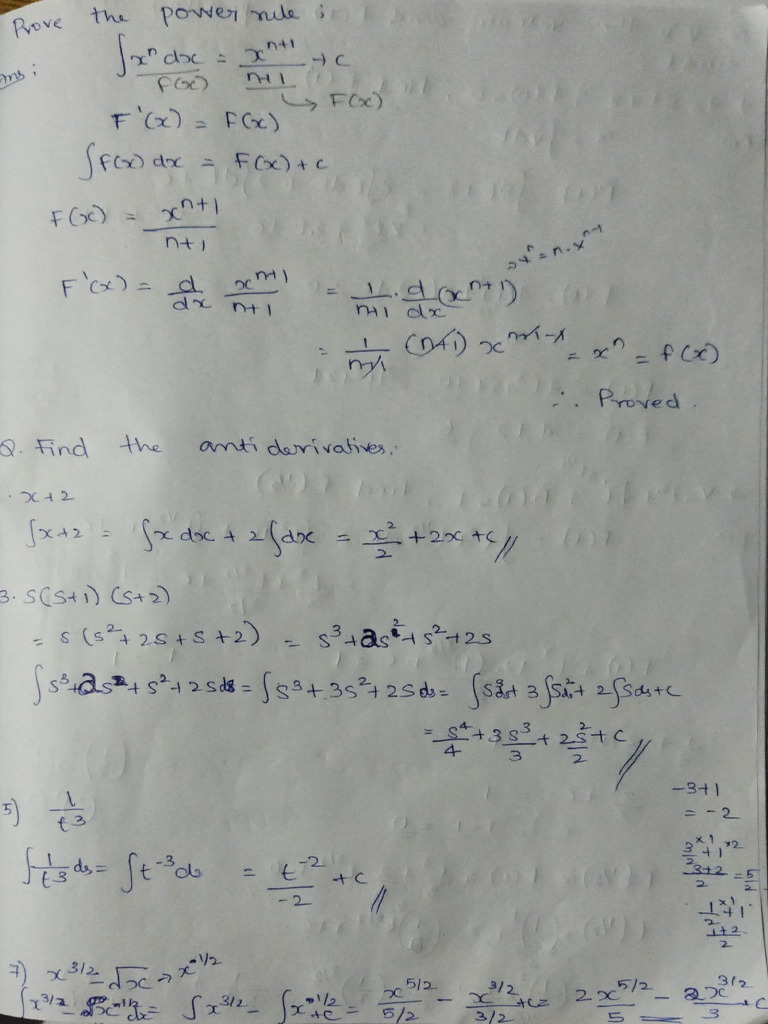 Prove the power rule :
Ans: ∫xⁿ dx = xⁿ⁺¹/n+1 + c
f(x) → F(x)
F'(x) = F(x)
∫f(x) dx = F(x) + c
F(x) = xⁿ⁺¹/n+1
⇒ xⁿ = n·xⁿ⁻¹
F'(x) = d/dx xⁿ⁺¹/n+1 = 1/n+1 · d/dx (xⁿ⁺¹)
= 1/n+1 (n+1) xⁿ⁺¹⁻¹ = xⁿ = f(x)
∴ Proved.
Q. Find the anti derivatives.
· x+2
∫x+2 = ∫x dx + 2∫dx = x²/2 + 2x + c //
3. S(S+1) (S+2)
= s (s² + 2s + s + 2) = s³ + 2s² + s² + 2s
∫s³ + 2s² + s² + 2s ds = ∫s³ + 3s² + 2s ds = ∫s³ds + 3∫s²ds + 2∫sds + c
= s⁴/4 + 3s³/3 + 2s²/2 + c //
5) 1/t³
-3+1
= -2
∫1/t³ ds = ∫t⁻³ ds = t⁻²/-2 + c //
3/2 ×1 + 1 ×2
3+2/2 = 5/2
1/2 ×1 + 1
1+2/2
7) x³ᐟ² - √x → x¹ᐟ²
∫x³ᐟ² - x¹ᐟ² dx = ∫x³ᐟ² - ∫x¹ᐟ² + c = x⁵ᐟ²/5/2 - x³ᐟ²/3/2 + c = 2x⁵ᐟ²/5 - 2x³ᐟ²/3 + c